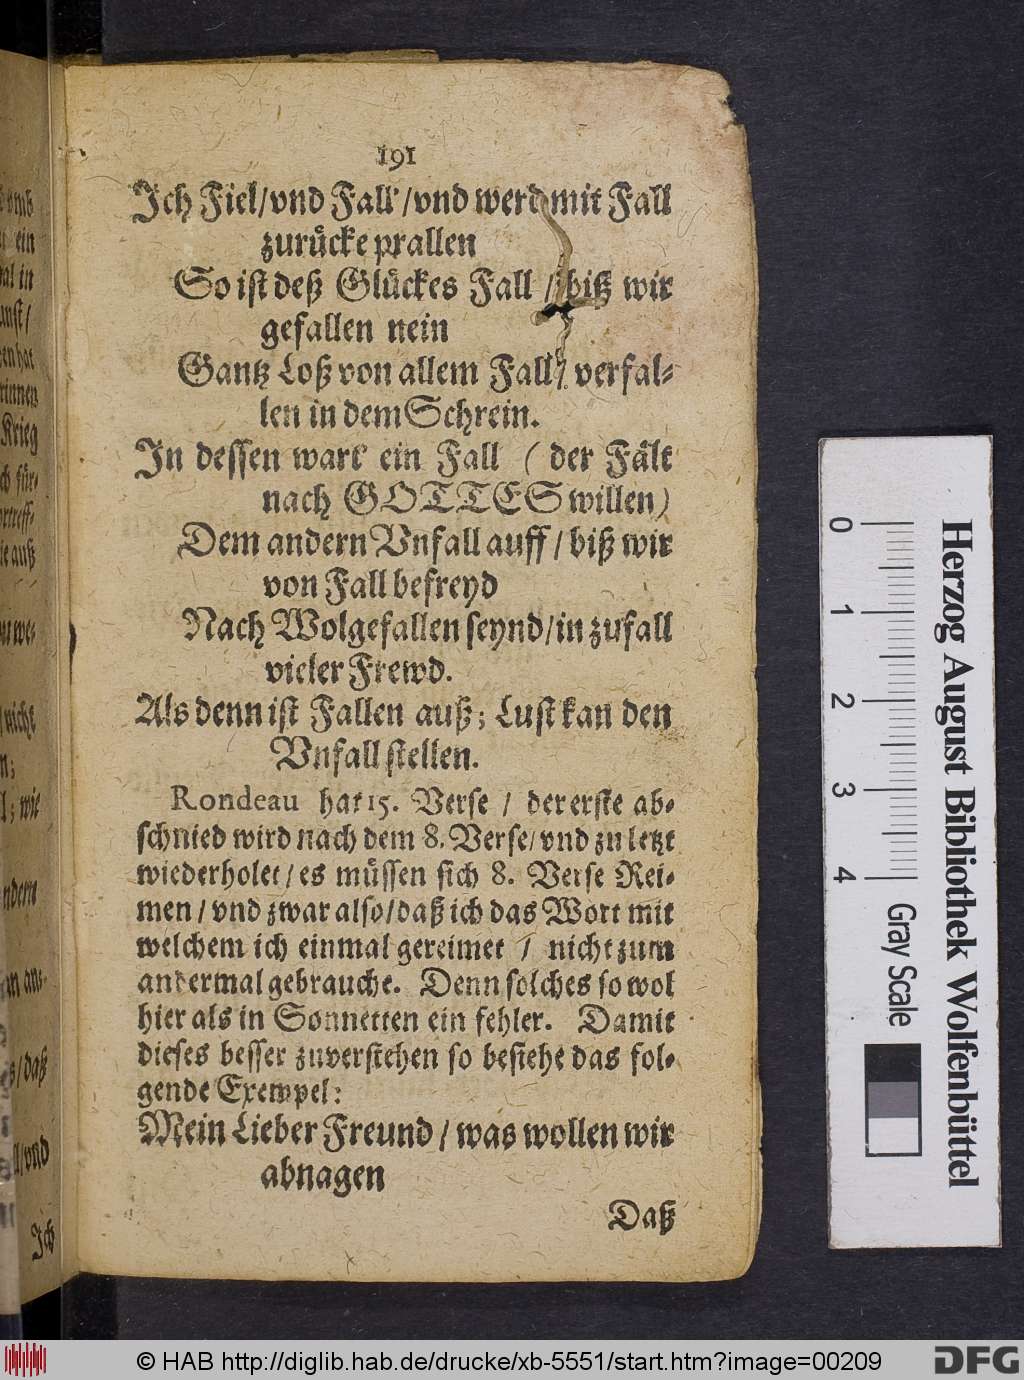 191
Ich Fiel/vnd Fall'/vnd werd mit Fall
zurücke prallen
So ist deß Glückes Fall / biß wir
gefallen nein
Gantz Loß von allem Fall/ verfal-
len in dem Schrein.
In dessen wart' ein Fall ( der Fält
nach GOTTES willen)
Dem andern Vnfall auff / biß wir
von Fall befreyd
Nach Wolgefallen seynd/in zufall
vieler Frewd.
Als denn ist Fallen auß; Lust kan den
Vnfall stellen.
Rondeau hat 15. Verse / der erste ab-
schnied wird nach dem 8. Verse/vnd zu letzt
wiederholet/es müssen sich 8. Verse Rei-
men/vnd zwar also/daß ich das Wort mit
welchem ich einmal gereimet / nicht zum
andermal gebrauche. Denn solches so wol
hier als in Sonnetten ein fehler. Damit
dieses besser zuverstehen so bestehe das fol-
gende Exempel:
Mein Lieber Freund / was wollen wir
abnagen
Daß
ein
Krieg
nicht
wie
ndern
/daß
/vnd
Ich
0 1 2 3 4
Gray Scale
Herzog August Bibliothek Wolfenbüttel
© HAB http://diglib.hab.de/drucke/xb-5551/start.htm?image=00209
DFG